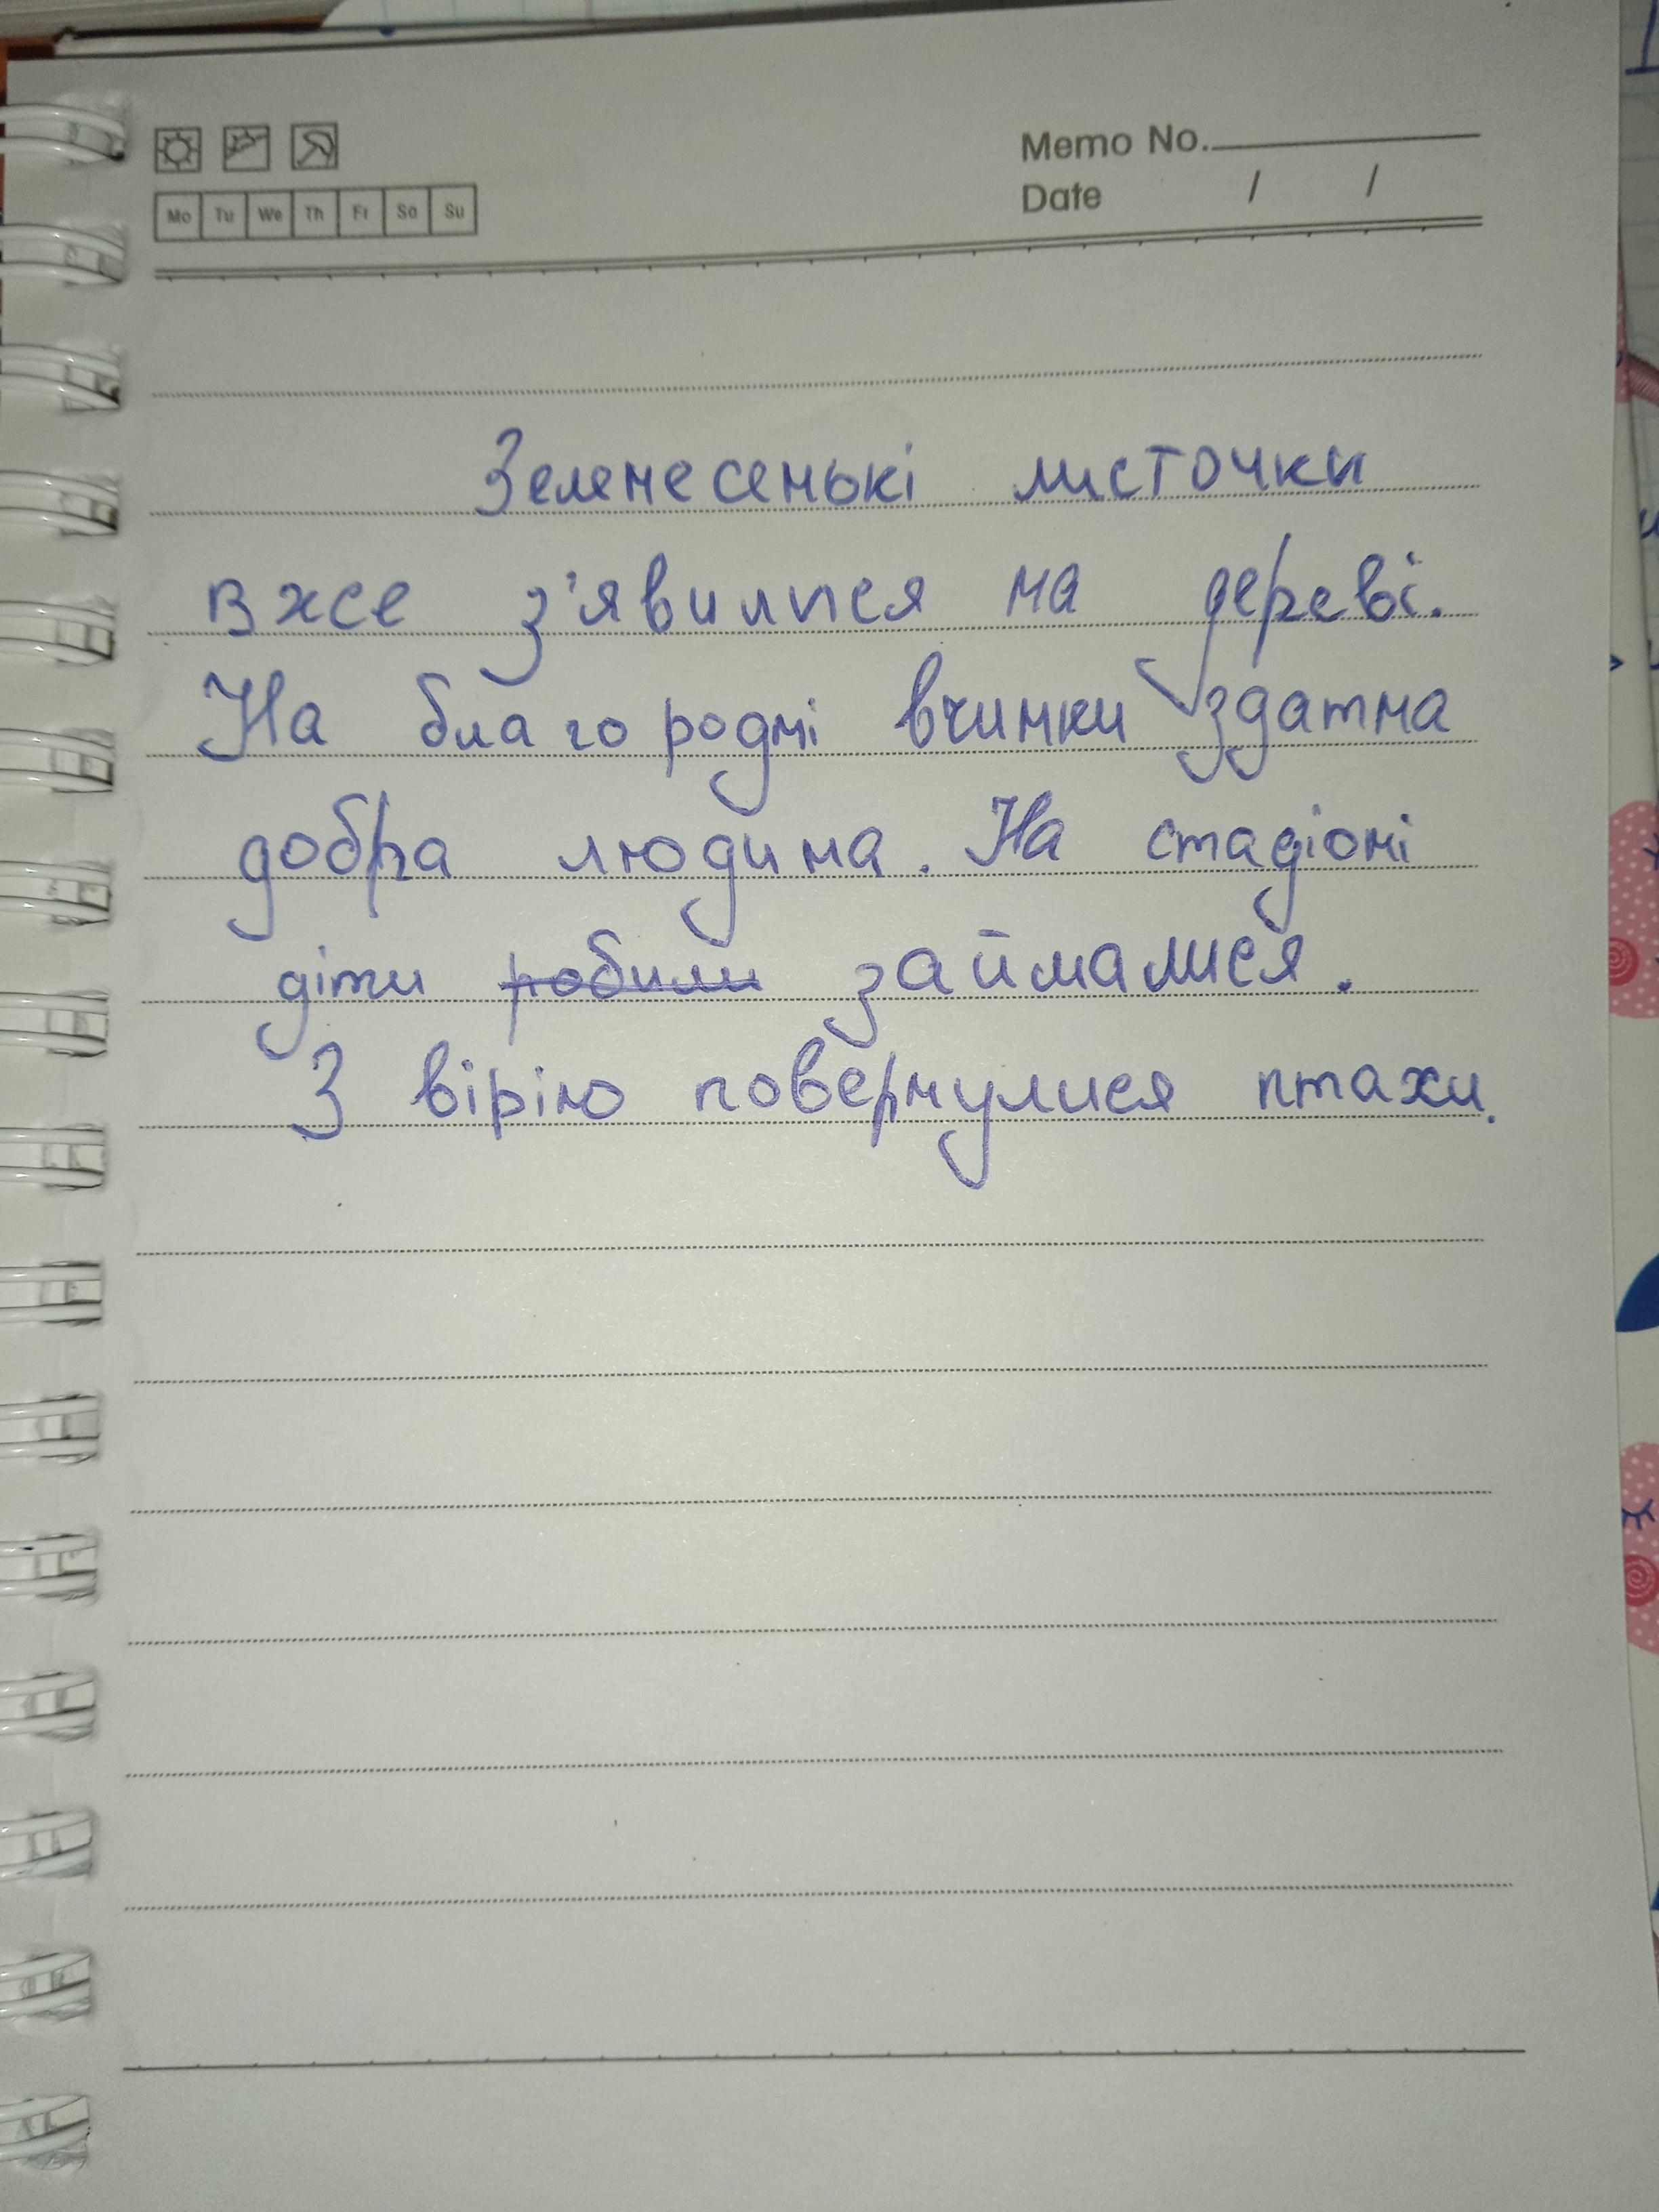 Memo No.
Mo Tu We Th Fr Sa Su
Date / /
Зеленесенькі листочки
вже з'явилися на дереві.
На благородні вчинки здатна
добра людина. На стадіоні
діти робили займалися.
З вірію повернулися птахи.